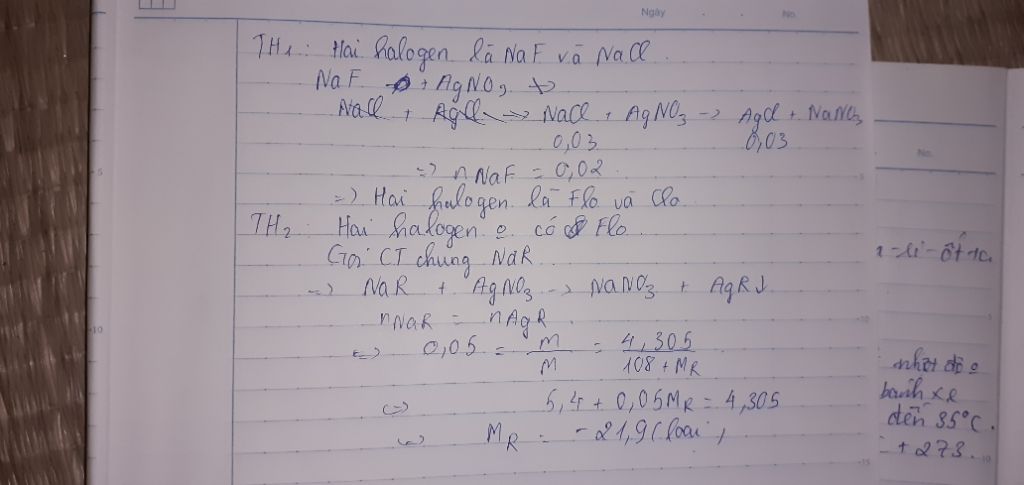 Ngày . . No.
TH1: Hai halogen là NaF và NaCl.
NaF + AgNO3 →
NaCl + AgCl → NaCl + AgNO3 → AgCl + NaNO3
0,03 0,03
=> nNaF = 0,02.
=> Hai halogen là Flo và Clo
TH2: Hai halogen o có Flo
Gọi CT chung NaR
=> NaR + AgNO3 → NaNO3 + AgR↓
nNaR = nAgR
<=> 0,05 = m/M = 4,305/(108 + MR)
<=> 5,4 + 0,05MR = 4,305
<=> MR = -21,9 (loại)
No.
-li-ôt-ta
nhiệt độ o
bánh xe
đến 35°C.
+ 273.
5
10
15